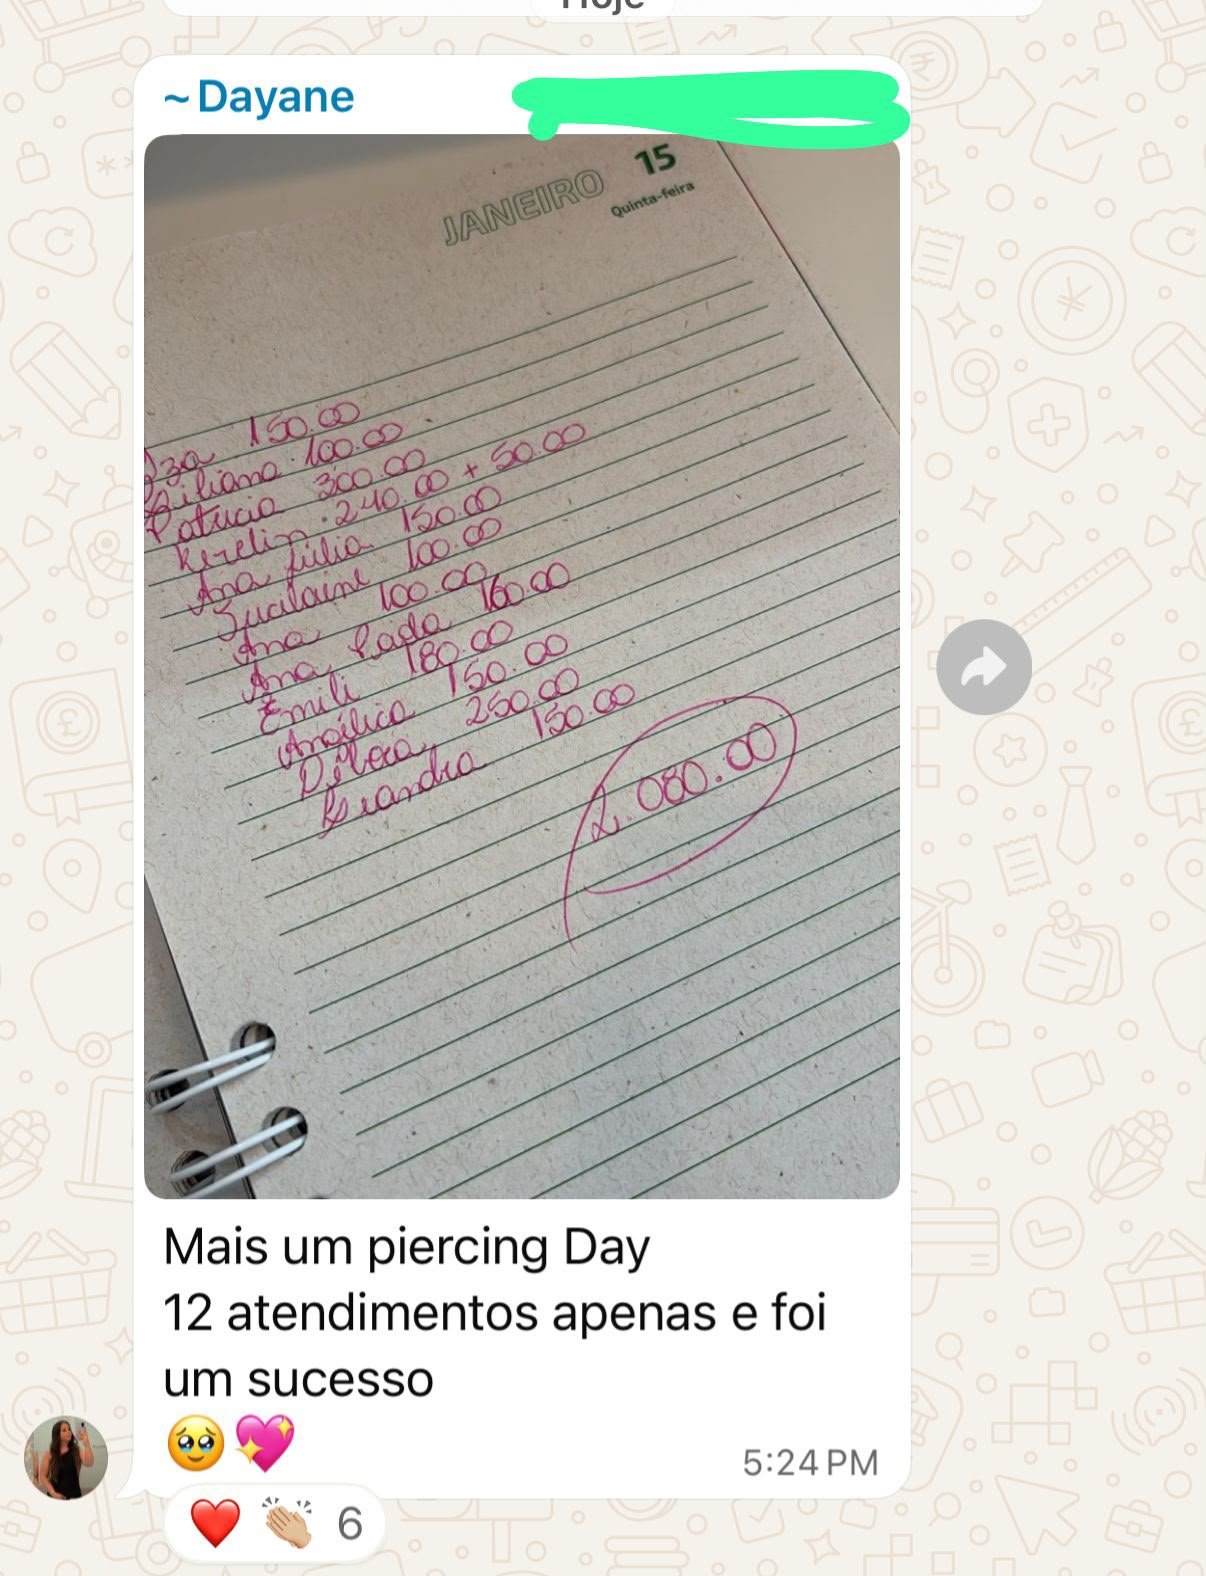 Hoje
~ Dayane
JANEIRO 15
Quinta-feira
Iza 150.00
Liliana 100.00
Patricia 300.00
Kerelin 240.00 + 50.00
Ana Júlia 150.00
100.00
Ana 100.00
Ana Paula 160.00
Emili 180.00
150.00
250.00
Leandra 150.00
2.080.00
Mais um piercing Day
12 atendimentos apenas e foi
um sucesso
🥹💖
5:24 PM
❤️ 👏🏼 6